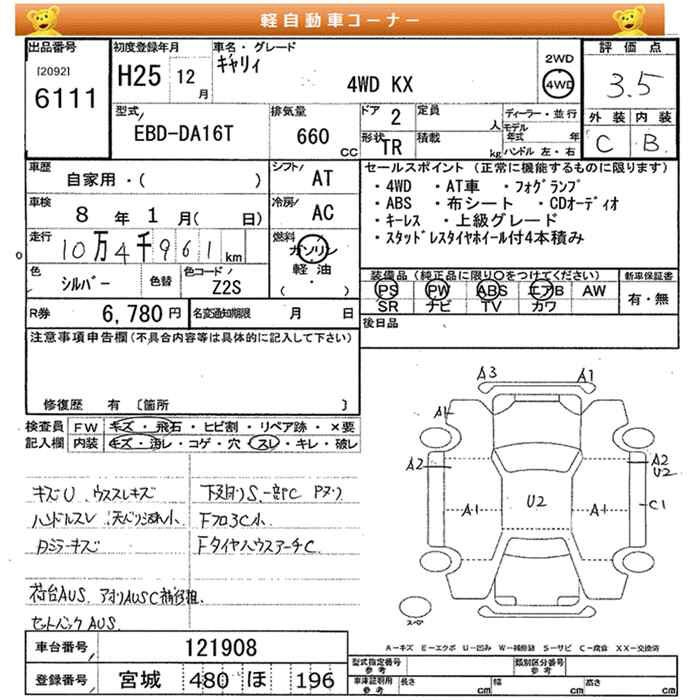 軽自動車コーナー
出品番号
[2092]
6111
初度登録年月
H25 12月
車名・グレード
キャリィ
4WD KX
2WD
4WD
評価点
3.5
外装 内装
C B
型式
EBD-DA16T
排気量
660 CC
ドア 2
形状 TR
定員 人
積載 kg
ディーラー・並行
モデル年式 年
ハンドル 左・右
車歴
自家用・( )
シフト AT
車検
8年 1月( 日)
冷房 AC
走行
10万4千961km
燃料
ガソリン
軽油
・
( )
色
シルバー
色替
色コード
Z2S
R券 6,780円
名変通知期限 月 日
セールスポイント(正常に機能するものに限ります)
・4WD ・AT車 ・フォグランプ
・ABS ・布シート ・CDオーディオ
・キーレス ・上級グレード
・スタッドレスタイヤホイール付4本積み
装備品(純正品に限り○をつけてください)
PS PW ABS エアB AW
SR ナビ TV カワ
新車保証書
有・無
後日品
注意事項申告欄(不具合内容等は具体的に記入して下さい)
修復歴 有 〔箇所 〕
検査員記入欄
FW キズ・飛石・ヒビ割・リペア跡・×要
内装 キズ・汚レ・コゲ・穴・スレ・キレ・破レ
キズU、ウススレキズ
ハンドルスレ
下廻りS、一部C Pヌリ
Fフロ3C小
Fタイヤハウスアーチ C
荷台AUS、アオリAUSC補修粗
セットバックAUS
A3 A1
A1
A2
A2
U2
A1 U2 A1
C1
スペア
A-キズ E-エクボ U-凹み W-補修跡 S-サビ C-腐食 XX-交換済
車台番号 121908
登録番号 宮城 480 ほ 196
型式指定番号 参考
類別区分番号 参考
車庫証明用 参考
長さ cm 幅 cm 高さ cm